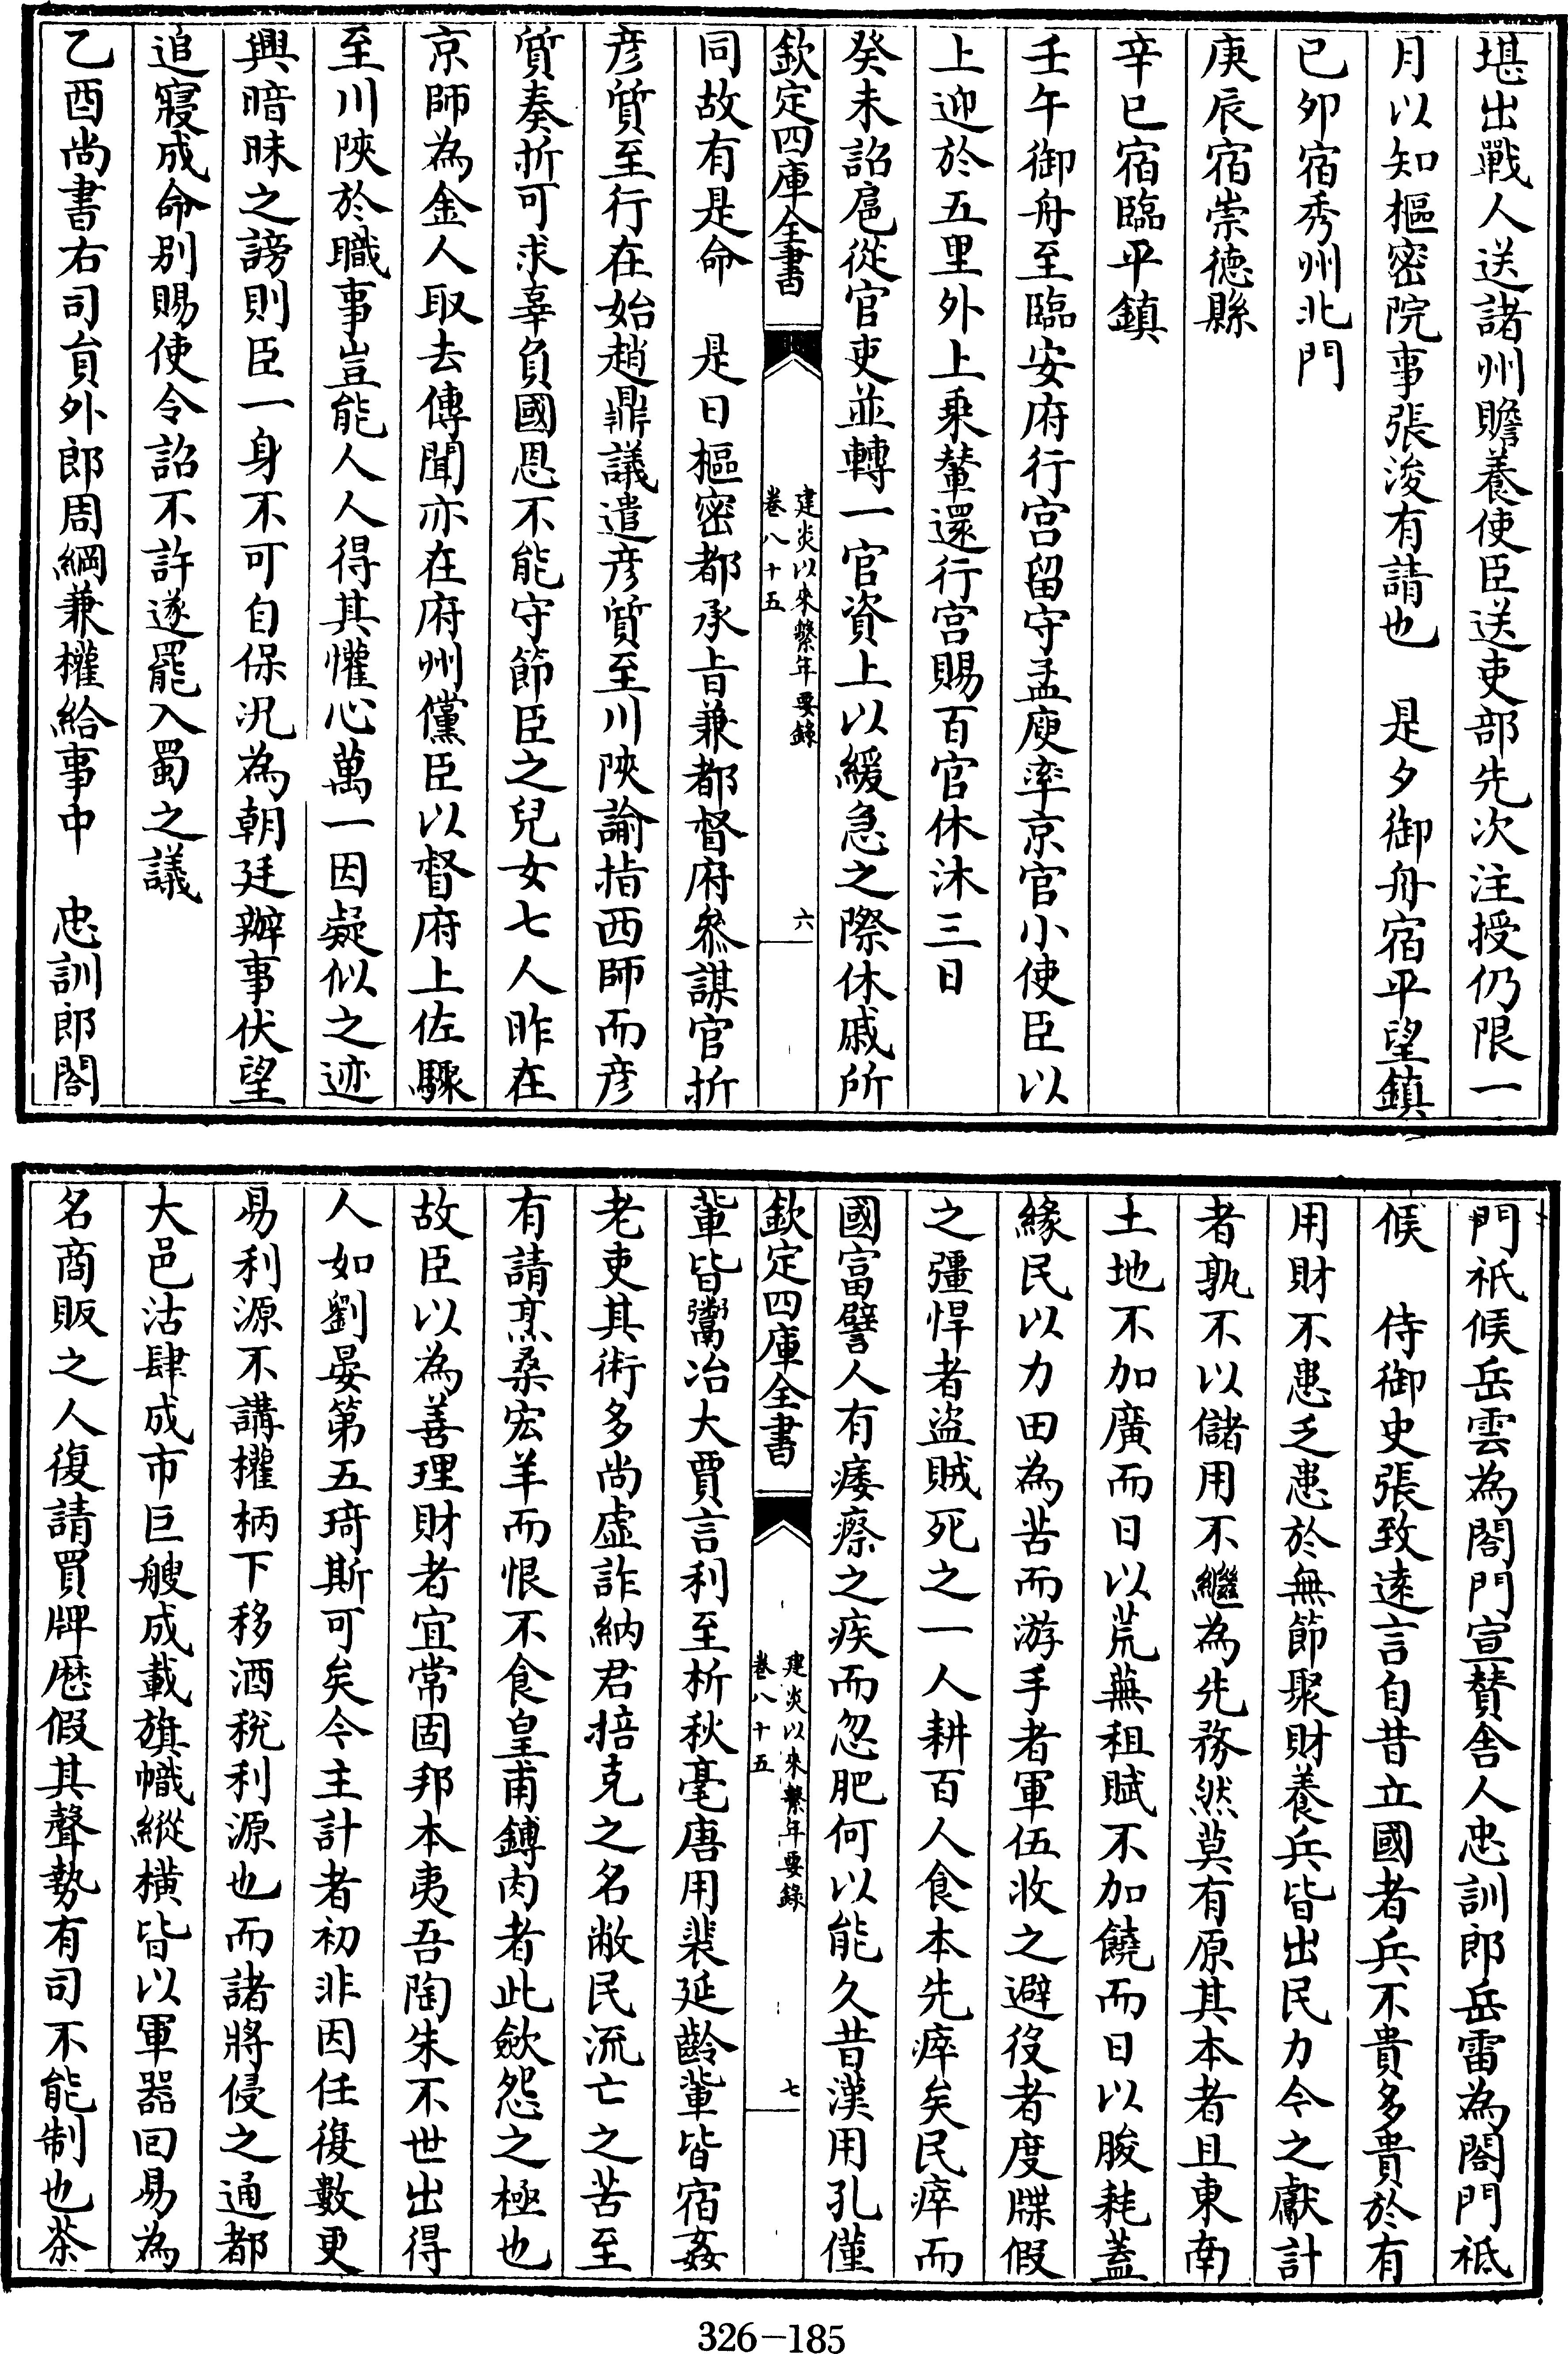 堪出戰人送諸州贍養使臣送吏部先次注授仍限一
月以知樞密院事張浚有請也　是夕御舟宿平望鎮
已夘宿秀州北門
庚辰宿崇德縣
辛巳宿臨平鎮
壬午御舟至臨安府行宫留守孟庾率京官小使臣以
上迎於五里外上乗輦還行宫賜百官休沐三日
癸未詔扈從官吏並轉一官資上以緩急之際休戚所
欽定四庫全書
建炎以來繫年要錄
卷八十五
六
同故有是命　是日樞密都承旨兼都督府叅謀官折
彦質至行在始趙鼎議遣彦質至川陜諭指西師而彦
質奏折可求辜負國恩不能守節臣之兒女七人昨在
京師為金人取去傳聞亦在府州儻臣以督府上佐驟
至川陜於職事豈能人人得其懽心萬一因疑似之迹
興暗昧之謗則臣一身不可自保况為朝廷辦事伏望
追寢成命别賜使令詔不許遂罷入蜀之議
乙酉尚書右司員外郎周綱兼權給事中　忠訓郎閤
門祇候岳雲為閤門宣賛舍人忠訓郎岳雷為閤門祗
候　侍御史張致逺言自昔立國者兵不貴多貴於有
用財不患乏患於無節聚財養兵皆出民力今之獻計
者孰不以儲用不繼為先務然莫有原其本者且東南
土地不加廣而日以荒蕪租賦不加饒而日以朘耗蓋
緣民以力田為苦而游手者軍伍收之避役者度牒假
之彊悍者盜賊死之一人耕百人食本先瘁矣民瘁而
國富譬人有痿瘵之疾而忽肥何以能久昔漢用孔僅
欽定四庫全書
建炎以來繫年要錄
卷八十五
七
輩皆鬻冶大賈言利至析秋毫唐用裴延齡輩皆宿姦
老吏其術多尚虛詐納君掊克之名敝民流亡之苦至
有請烹桑宏羊而恨不食皇甫鎛肉者此斂怨之極也
故臣以為善理財者宜常固邦本夷吾陶朱不世出得
人如劉晏第五琦斯可矣今主計者初非因任復數更
易利源不講權柄下移酒稅利源也而諸將侵之通都
大邑沽肆成市巨艘成載旗幟縱横皆以軍器回易為
名商販之人復請買牌厯假其聲勢有司不能制也茶
326-185